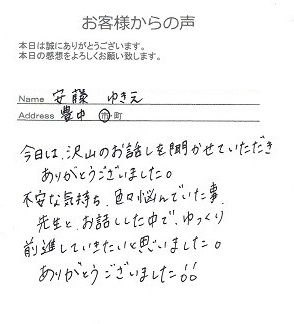 お客様からの声
本日は誠にありがとうございます。
本日の感想をよろしくお願い致します。
Name 安藤 ゆきえ
Address 豊中 市・町
今日は、沢山のお話しを聞かせていただき
ありがとうございました。
不安な気持ち、色々悩んでいた事、
先生と、お話しした中で、ゆっくり
前進していきたいと思いました。
ありがとうございました!!